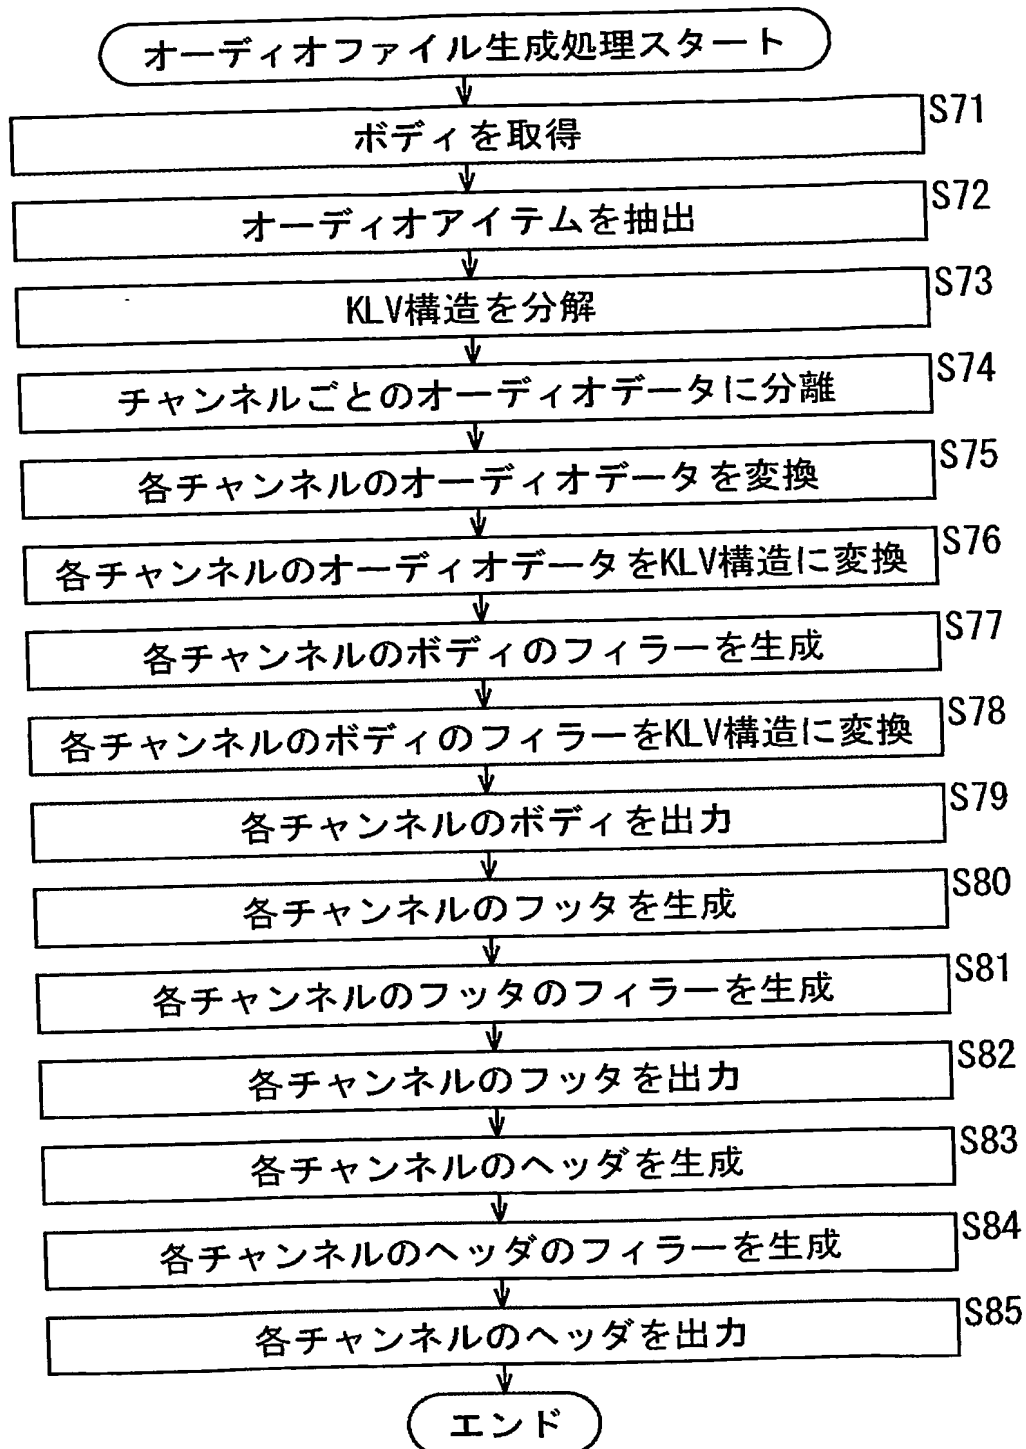 オーディオファイル生成処理スタート
S71
ボディを取得
S72
オーディオアイテムを抽出
S73
KLV構造を分解
S74
チャンネルごとのオーディオデータに分離
S75
各チャンネルのオーディオデータを変換
S76
各チャンネルのオーディオデータをKLV構造に変換
S77
各チャンネルのボディのフィラーを生成
S78
各チャンネルのボディのフィラーをKLV構造に変換
S79
各チャンネルのボディを出力
S80
各チャンネルのフッタを生成
S81
各チャンネルのフッタのフィラーを生成
S82
各チャンネルのフッタを出力
S83
各チャンネルのヘッダを生成
S84
各チャンネルのヘッダのフィラーを生成
S85
各チャンネルのヘッダを出力
エンド